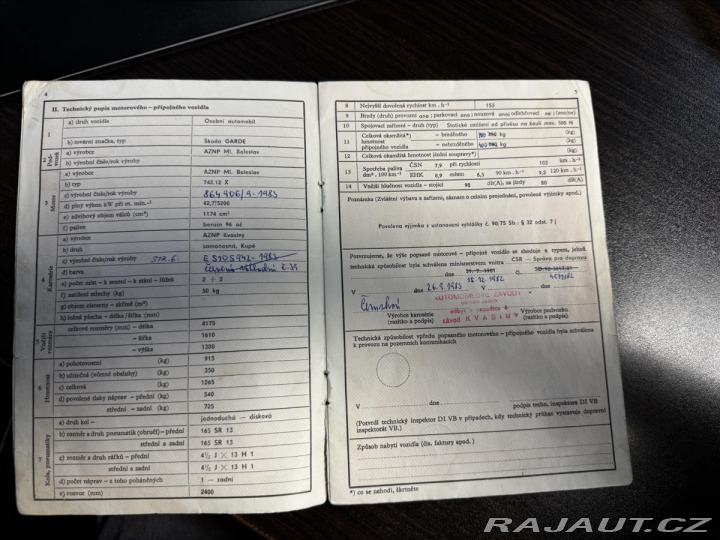 4
II. Technický popis motorového – přípojného vozidla
1
a) druh vozidla Osobní automobil
b) tovární značka, typ Škoda GARDE
2 Podvozek
a) výrobce AZNP Ml. Boleslav
b) výrobní číslo/rok výroby
3 Motor
a) výrobce AZNP Ml. Boleslav
b) typ 742.12 X
c) výrobní číslo/rok výroby
d) plný výkon kW při ot. min.⁻¹ 42,7/5200
e) zdvihový objem válců (cm³) 1174 cm³
f) palivo benzin 96 oč
4 Karosérie
a) výrobce AZNP Kvasiny
b) druh samonosná, Kupé
c) výrobní číslo/rok výroby
d) barva
e) počet míst – k sezení – k stání – lůžek 2 + 2
f) zatížení střechy (kg) 50 kg
g) objem cisterny – skříně (m³)
h) ložná plocha – délka/šířka (mm)
5 Vnější rozměry
celkové rozměry (mm) – délka 4175
– šířka 1610
– výška 1300
6 Hmotnost
a) pohotovostní (kg) 915
b) užitečná (včetně obsluhy) (kg) 350
c) celková (kg) 1265
d) povolené tlaky náprav – přední (kg) 540
střední – zadní (kg) 725
7 Kola, pneumatiky
a) druh kol – jednoduchá – disková
b) rozměr a druh pneumatik (obručí) – přední 165 SR 13
střední a zadní 165 SR 13
c) rozměr a druh ráfků – přední 4½ J × 13 H 1
střední a zadní 4½ J × 13 H 1
d) počet náprav – z toho poháněných 1 – zadní
e) rozvor (mm) 2400
5
8 Nejvyšší dovolená rychlost km . h⁻¹ 153
9 Brzdy (druh) provozní ano; parkovací ano; nouzová ano; odlehčovací
10 Spojovací zařízení – druh (typ) Statické zatížení od přívěsu na kouli max. 500 N
11 Celková okamžitá*) hmotnost přípojného vozidla
– brzděného kg (kg)
– nebrzděného kg (kg)
12 Celková okamžitá hmotnost jízdní soupravy*) (kg)
13 Spotřeba paliva dm³ . 100 km⁻¹
ČSN 7,9 při rychlosti 102 km . h⁻¹
EHK 8,9 měsen 6,5 90 km . h⁻¹ 9,2 120 km . h⁻¹
14 Vnější hlučnost vozidla – stojící dB(A), za jízdy 80 dB(A)
Poznámka (Zvláštní výbava a zařízení, záznam o celém projednání, povolené výjimky apod.)
Povolena výjimka z ustanovení vyhlášky č. 90/75 Sb.: § 32 odst. 7 j
Potvrzujeme, že výše popsané motorové – přípojné vozidlo se shoduje s typem, jehož
technická způsobilost byla schválena ministerstvem vnitra ČSR – Správou pro dopravu
dne
V dne 26.9.1983
Výrobce karosérie (razítko a podpis)
AUTOMOBILOVÉ ZÁVODY
závod KVASINY
Výrobce podvozku (razítko a podpis)
Technická způsobilost výše popsaného motorového – přípojného vozidla byla schválena
k provozu na pozemních komunikacích
V dne
podpis techn. inspektora DI VB
(Potvrdí technický inspektor DI VB v případech, kdy technický průkaz vystavuje dopravní
inspektorát VB.)
Způsob nabytí vozidla (čís. faktury apod.).
*) co se nehodí, škrtněte
RAJAUT.CZ